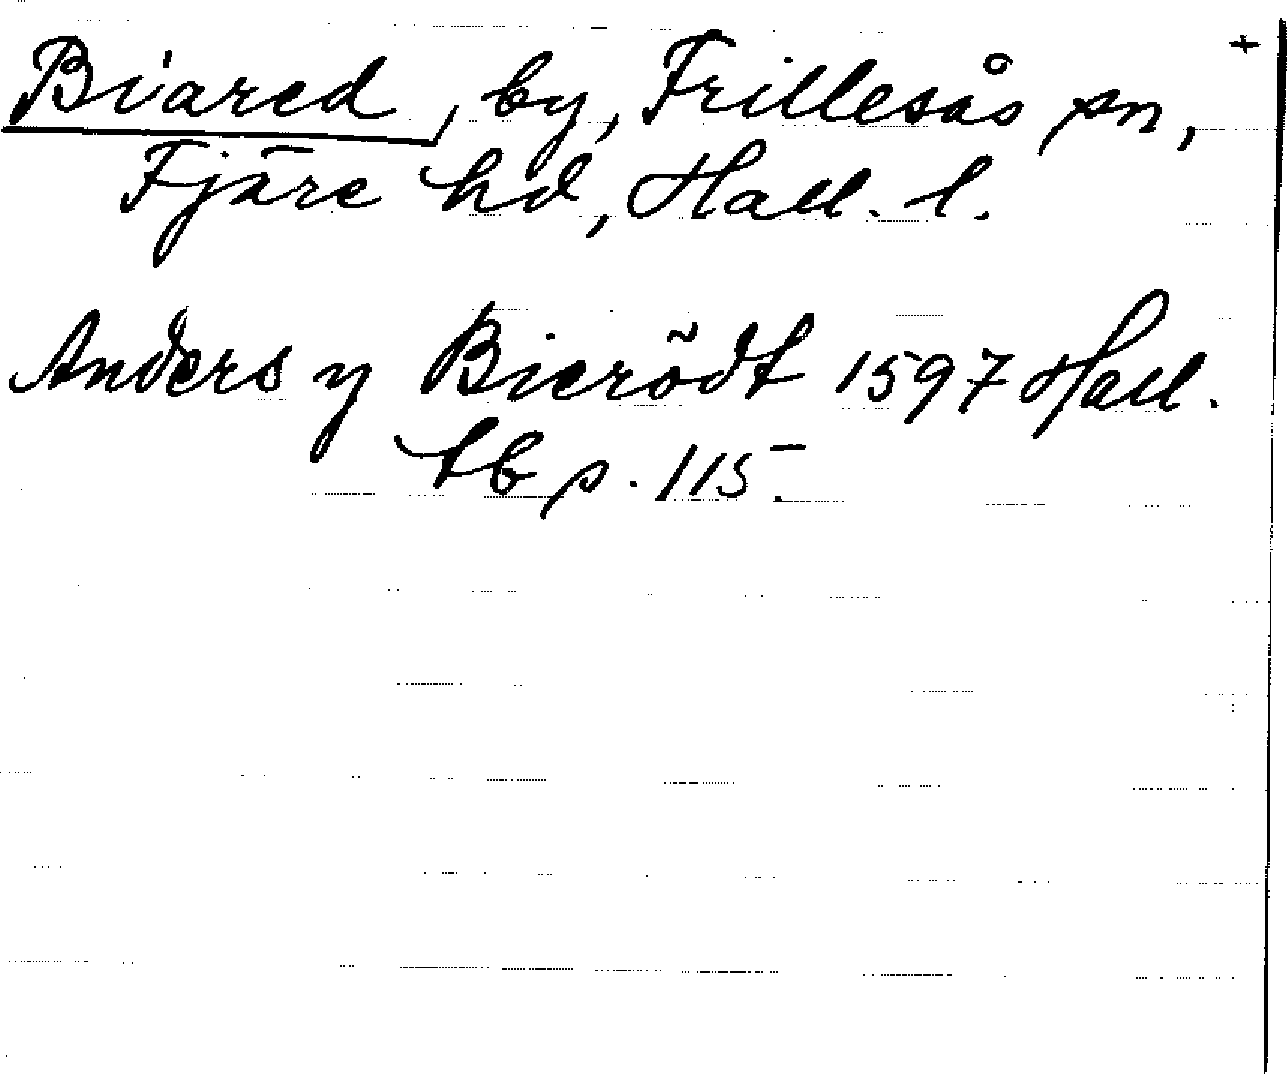 +
Biared, by, Frillesås sn,
Fjäre hd, Hall. l.
Anders y Bierödt 1597 Hall.
tb p. 115.